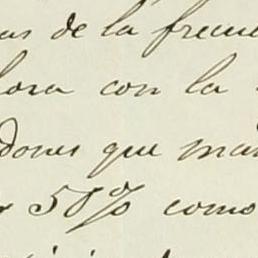 as de la frecue
hora con la
dones que man
r 50% como